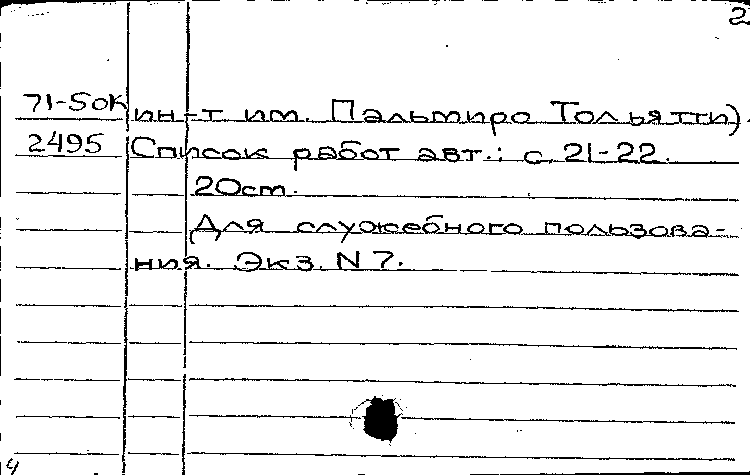 2
71-5ОК ин-т им. Пальмиро Тольятти).
2495 Список работ авт.: с. 21-22.
20см.
Для служебного пользова-
ния. Экз. N 7.
4